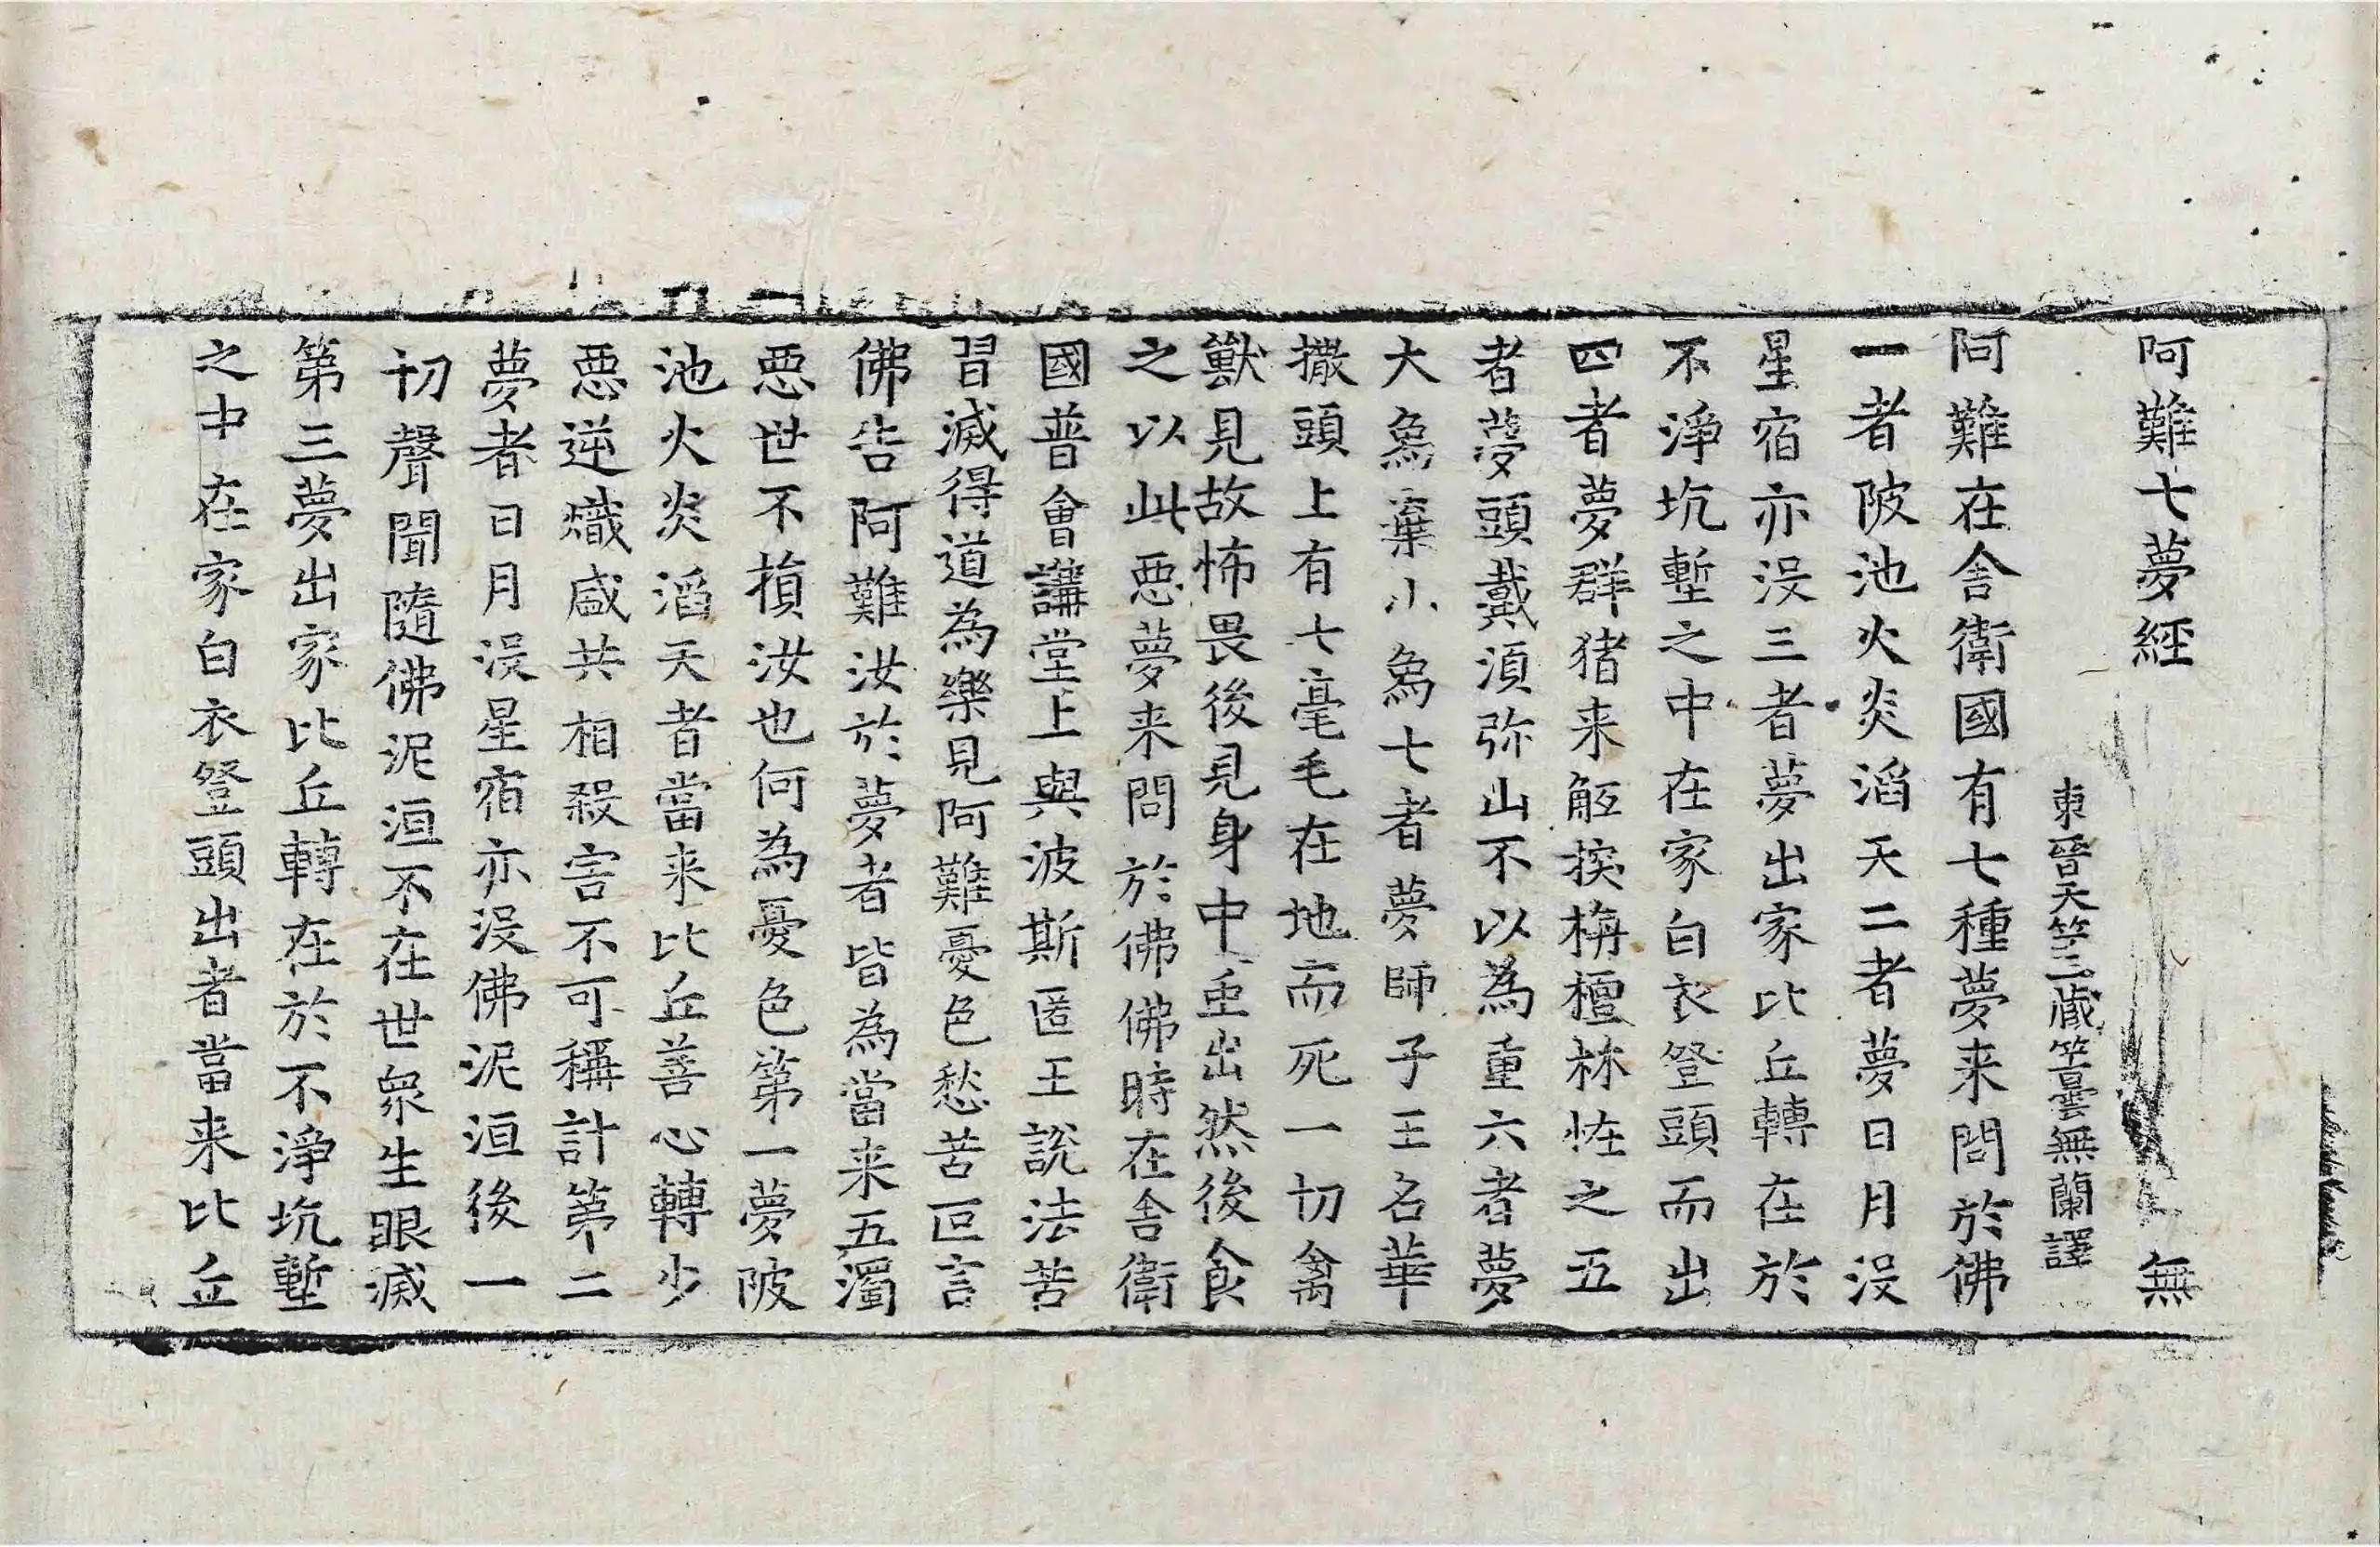 阿難七夢經 無
東晉天竺三藏竺曇無蘭譯
阿難在舍衛國有七種夢来問於佛
一者陂池火炎滔天二者夢日月没
星宿亦没三者夢出家比丘轉在於
不淨坑塹之中在家白衣登頭而出
四者夢群猪来觝揬栴檀林恠之五
者夢頭戴湏弥山不以為重六者夢
大象棄小象七者夢師子王名華
撒頭上有七毫毛在地而死一切禽
獸見故怖畏後見身中䖝出然後食
之以此惡夢来問於佛佛時在舍衛
國普會講堂上與波斯匿王説法苦
習滅得道為樂見阿難憂色愁苦叵言
佛告阿難汝於夢者皆為當来五濁
惡世不損汝也何為憂色第一夢陂
池火炎滔天者當来比丘善心轉少
惡逆熾盛共相殺害不可稱計第二
夢者日月没星宿亦没佛泥洹後一
切聲聞隨佛泥洹不在世衆生眼滅
第三夢出家比丘轉在於不淨坑塹
之中在家白衣登頭出者當来比丘